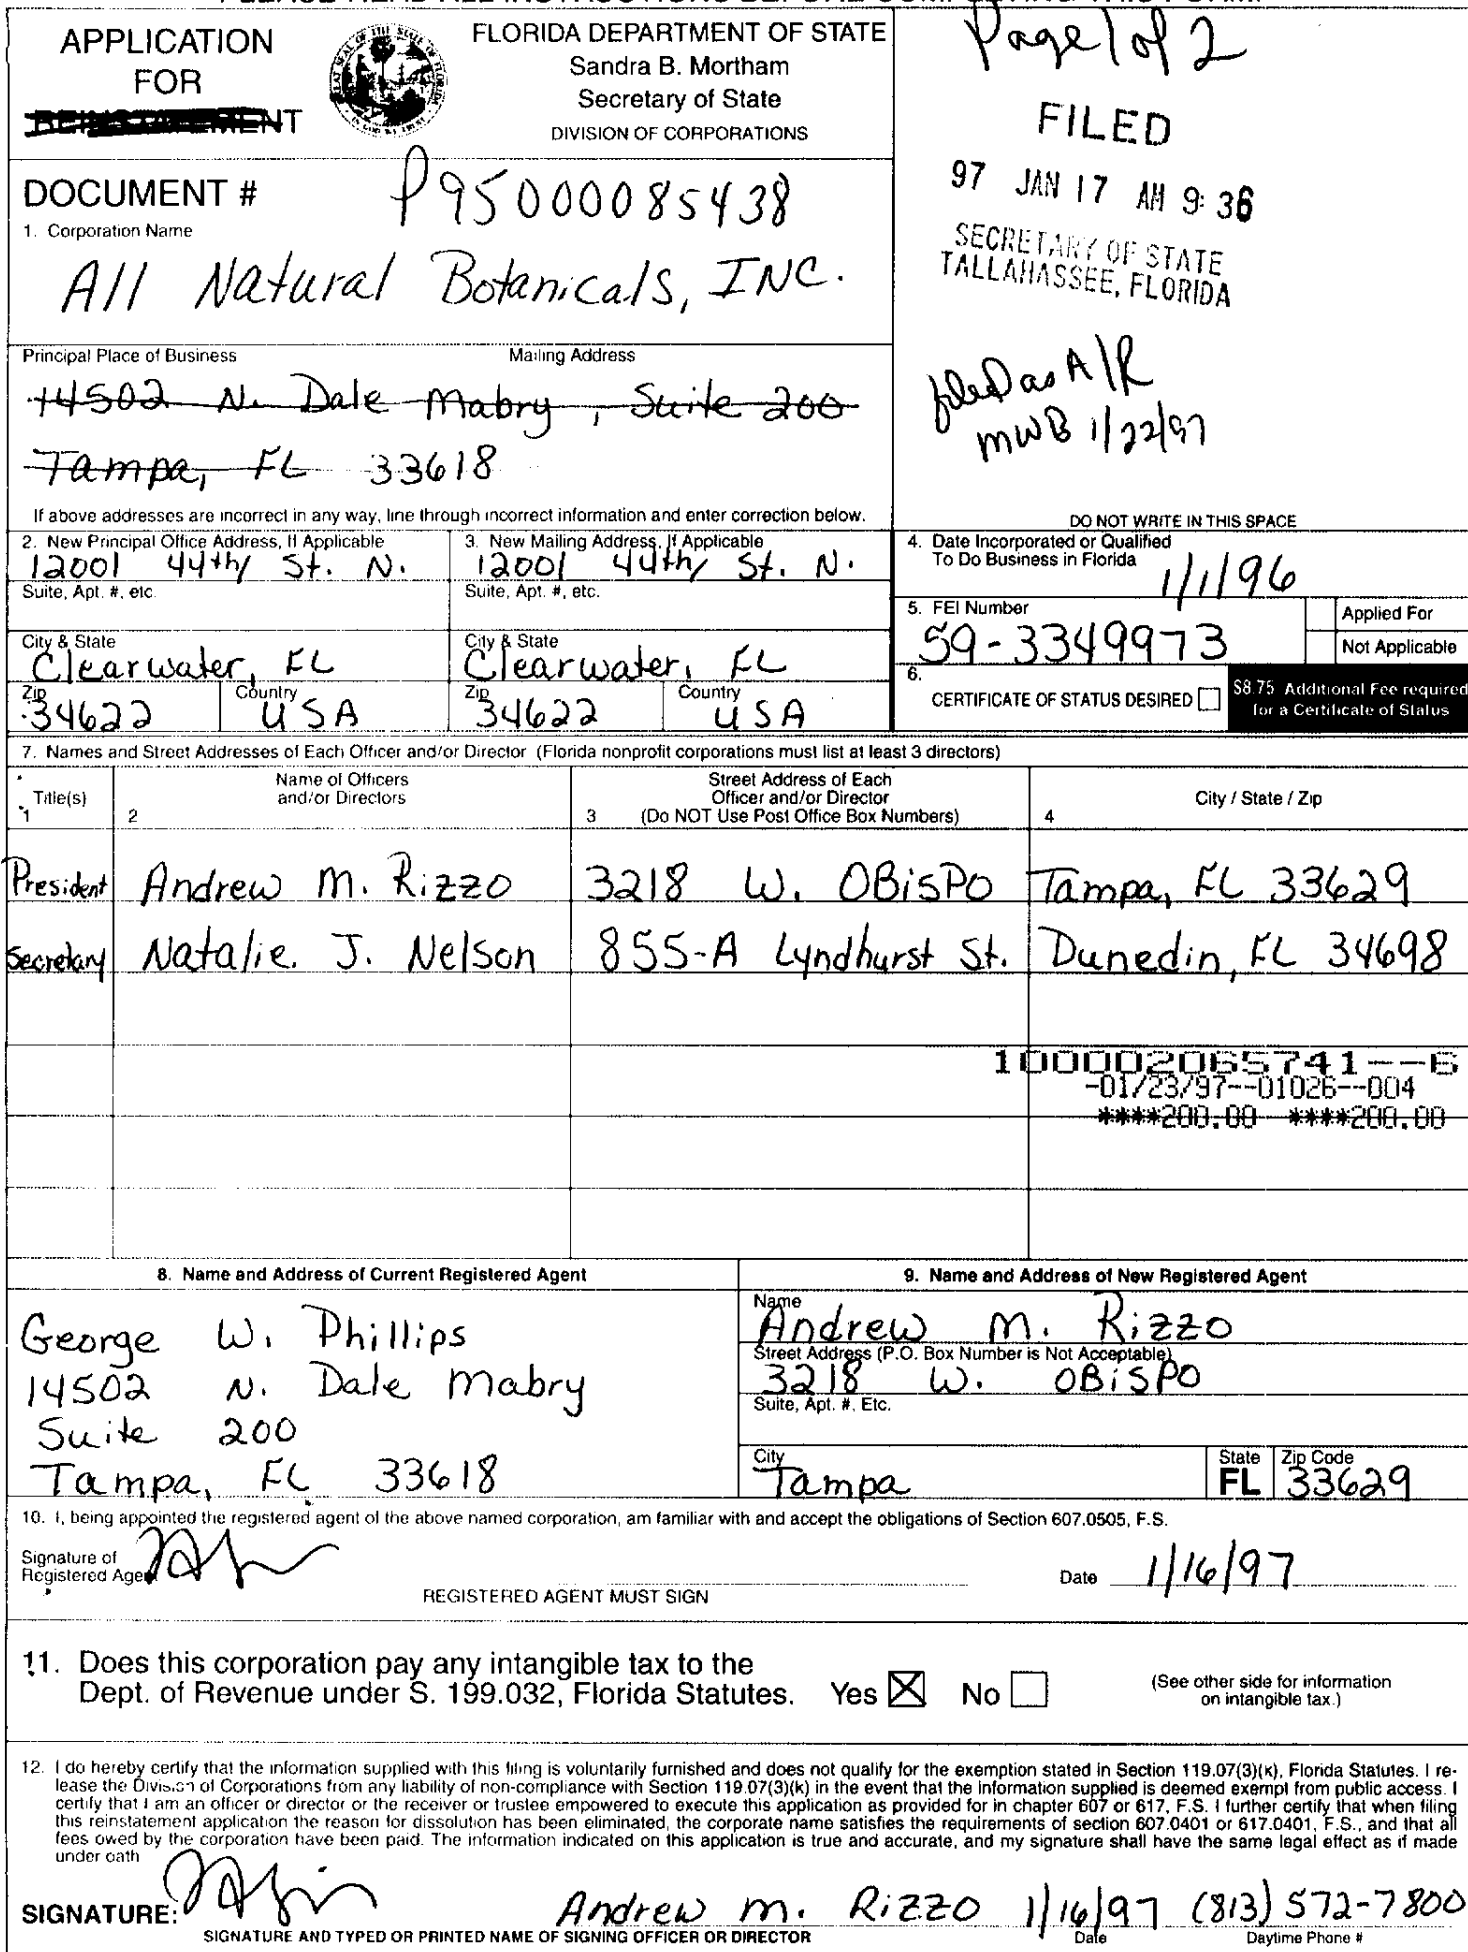 APPLICATION
FOR
REINSTATEMENT
FLORIDA DEPARTMENT OF STATE
Sandra B. Mortham
Secretary of State
DIVISION OF CORPORATIONS
Page 1 of 2
FILED
97 JAN 17 AM 9:36
SECRETARY OF STATE
TALLAHASSEE, FLORIDA
filed as A/R
MWB 1/22/97
DOCUMENT # P95000085438
1. Corporation Name
All Natural Botanicals, INC.
Principal Place of Business Mailing Address
14502 N. Dale Mabry, Suite 200
Tampa, FL 33618
If above addresses are incorrect in any way, line through incorrect information and enter correction below.
DO NOT WRITE IN THIS SPACE
2. New Principal Office Address, If Applicable
12001 44th St. N.
Suite, Apt. #, etc.
City & State
Clearwater, FL
Zip Country
34622 USA
3. New Mailing Address, If Applicable
12001 44th St. N.
Suite, Apt. #, etc.
City & State
Clearwater, FL
Zip Country
34622 USA
4. Date Incorporated or Qualified
To Do Business in Florida
1/1/96
5. FEI Number
59-3349973
Applied For
Not Applicable
6.
CERTIFICATE OF STATUS DESIRED
$8.75 Additional Fee required
for a Certificate of Status
7. Names and Street Addresses of Each Officer and/or Director (Florida nonprofit corporations must list at least 3 directors)
Title(s)
1
Name of Officers
and/or Directors
2
Street Address of Each
Officer and/or Director
3 (Do NOT Use Post Office Box Numbers)
City / State / Zip
4
President Andrew M. Rizzo 3218 W. OBiSPO Tampa, FL 33629
Secretary Natalie. J. Nelson 855-A Lyndhurst St. Dunedin, FL 34698
100002065741--6
-01/23/97--01026--004
****200.00 ****200.00
8. Name and Address of Current Registered Agent
George W. Phillips
14502 N. Dale Mabry
Suite 200
Tampa, FL 33618
9. Name and Address of New Registered Agent
Name
Andrew M. Rizzo
Street Address (P.O. Box Number is Not Acceptable)
3218 W. OBiSPO
Suite, Apt. #, Etc.
City State Zip Code
Tampa FL 33629
10. I, being appointed the registered agent of the above named corporation, am familiar with and accept the obligations of Section 607.0505, F.S.
Signature of
Registered Agent
Date 1/16/97
REGISTERED AGENT MUST SIGN
11. Does this corporation pay any intangible tax to the
Dept. of Revenue under S. 199.032, Florida Statutes. Yes ☒ No ☐
(See other side for information
on intangible tax.)
12. I do hereby certify that the information supplied with this filing is voluntarily furnished and does not qualify for the exemption stated in Section 119.07(3)(k), Florida Statutes. I re-
lease the Division of Corporations from any liability of non-compliance with Section 119.07(3)(k) in the event that the information supplied is deemed exempt from public access. I
certify that I am an officer or director or the receiver or trustee empowered to execute this application as provided for in chapter 607 or 617, F.S. I further certify that when filing
this reinstatement application the reason for dissolution has been eliminated, the corporate name satisfies the requirements of section 607.0401 or 617.0401, F.S., and that all
fees owed by the corporation have been paid. The information indicated on this application is true and accurate, and my signature shall have the same legal effect as if made
under oath
SIGNATURE: Andrew M. Rizzo 1/16/97 (813) 572-7800
SIGNATURE AND TYPED OR PRINTED NAME OF SIGNING OFFICER OR DIRECTOR Date Daytime Phone #